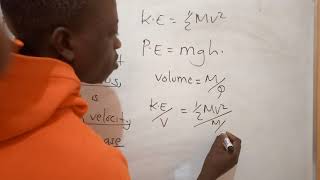 K.E = ½ Mv²
P.E = mgh.
volume = M/ρ
K.E/V = ½ Mv² / M/
is
velocity